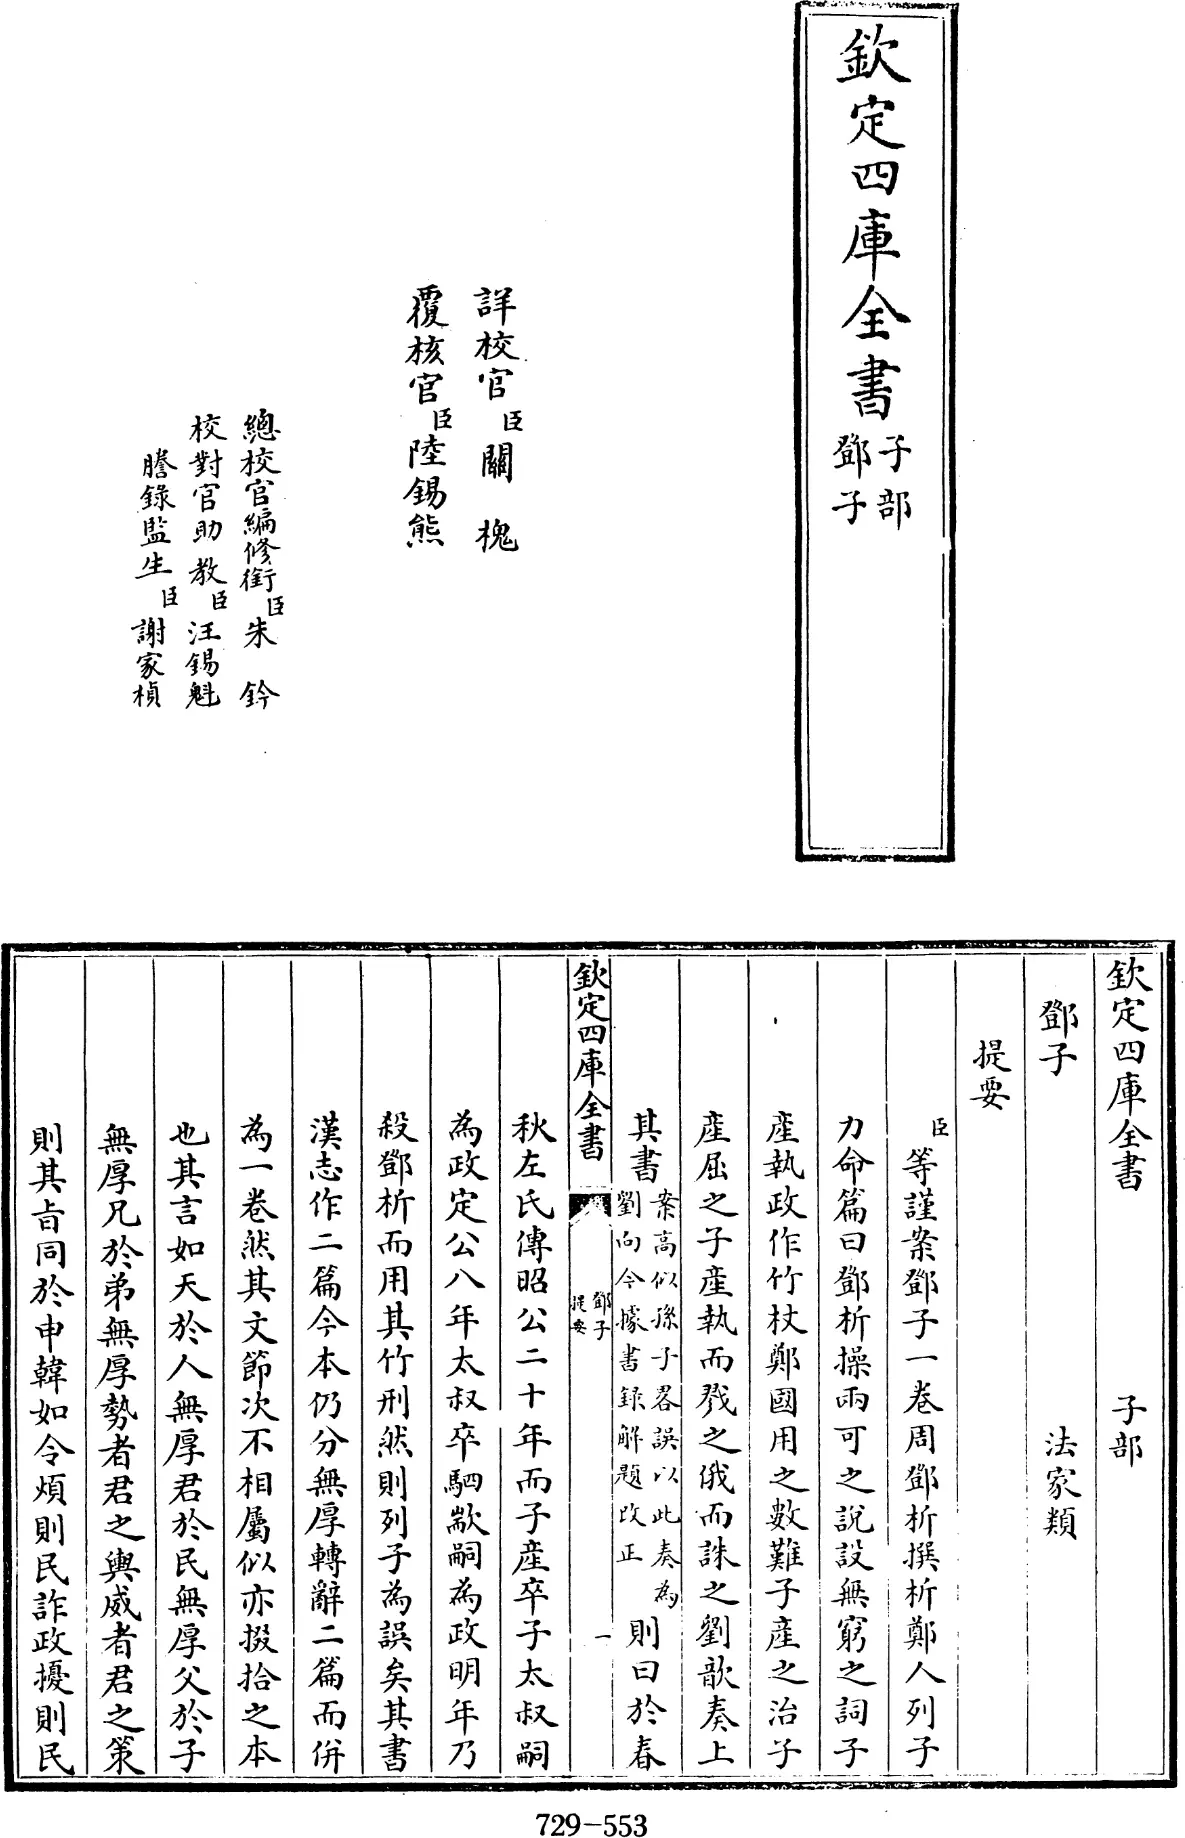 欽定四庫全書
子部
鄧子
詳校官臣關槐
覆核官臣陸錫熊
總校官編修銜臣朱鈐
校對官助教臣汪錫魁
謄錄監生臣謝家楨
欽定四庫全書 子部
鄧子 法家類
提要
臣等謹案鄧子一卷周鄧析撰析鄭人列子
力命篇曰鄧析操兩可之說設無窮之詞子
產執政作竹杖鄭國用之數難子產之治子
產屈之子產執而戮之俄而誅之劉歆奏上
其書案高似孫子畧誤以此奏為劉向今據書錄解題改正則曰於春
欽定四庫全書 鄧子提要 一
秋左氏傳昭公二十年而子產卒子太叔嗣
為政定公八年太叔卒駟歂嗣為政明年乃
殺鄧析而用其竹刑然則列子為誤矣其書
漢志作二篇今本仍分無厚轉辭二篇而併
為一卷然其文節次不相屬似亦掇拾之本
也其言如天於人無厚君於民無厚父於子
無厚兄於弟無厚勢者君之輿威者君之策
則其旨同於申韓如令煩則民詐政擾則民
729-553